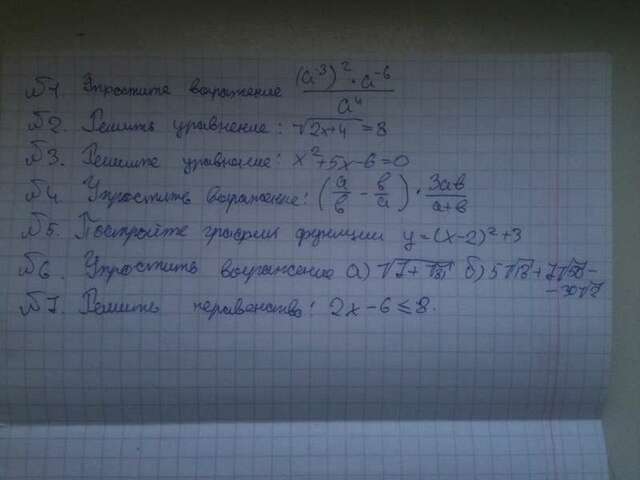 №1. Упростите выражение (a⁻³)² · a⁻⁶ / a⁴
№2. Решить уравнение: √(2x+4) = 8
№3. Решите уравнение: x²+5x-6=0
№4. Упростить выражение: (a/b - b/a) · 3ab/(a+b)
№5. Постройте график функции y=(x-2)²+3
№6. Упростить выражение а) √ б) 5√ +
- 30√2
№7. Решить неравенство: 2x-6≤8.